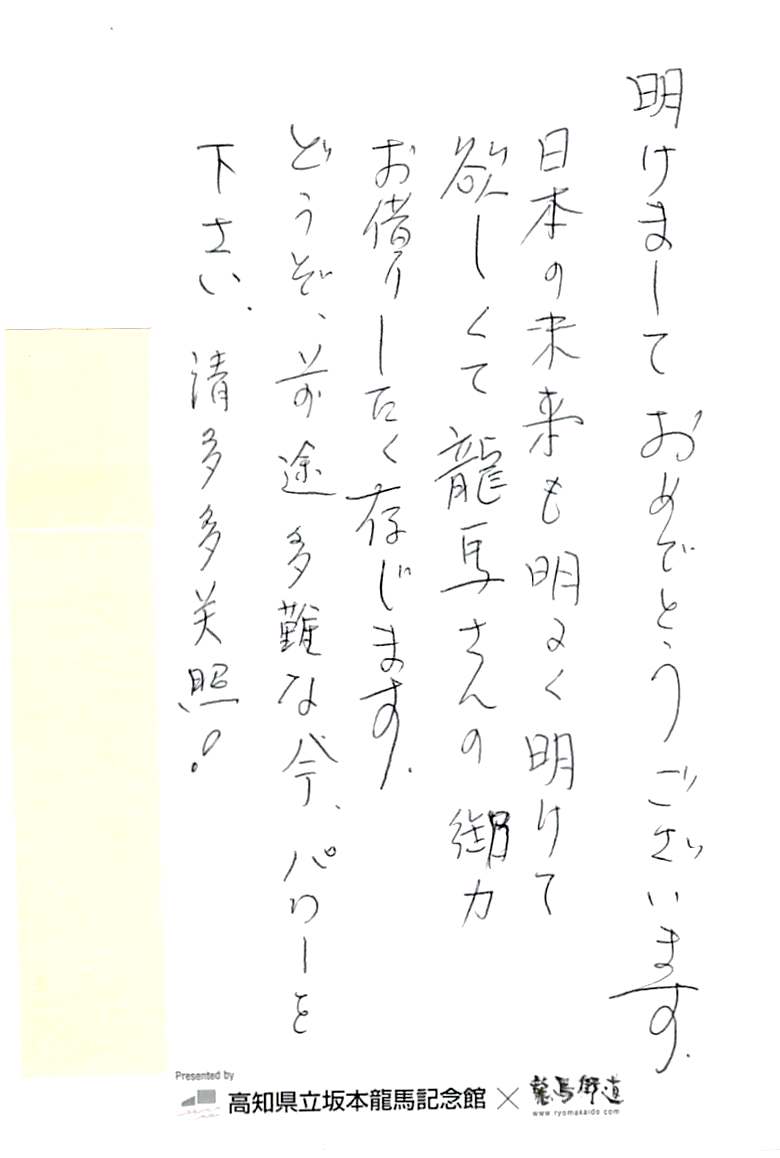 明けまして おめでとうございます.
日本の未来も明るく明けて
欲しくて龍馬さんの御力
お借りしたく存じます.
どうぞ、前途多難な今、パワーを
下さい. 清多多美照!
Presented by
高知県立坂本龍馬記念館×龍馬街道
www.ryomakaido.com